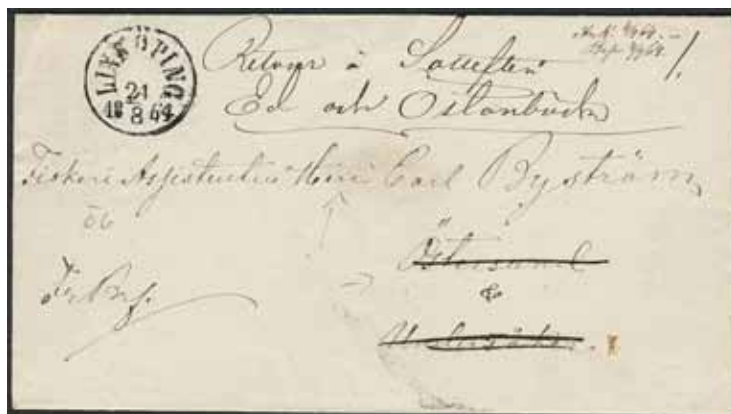 LINKÖPING
21
8
18 64
Retour à Sollefteå
Ed och Östanbäck
Fiskeri Assistenten Herr Carl Byström
Östersund
&
Undersåker.
Fr. Brf.